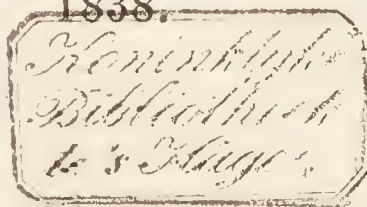 1838.
Koninklijke
Bibliotheek
te 's Hage.